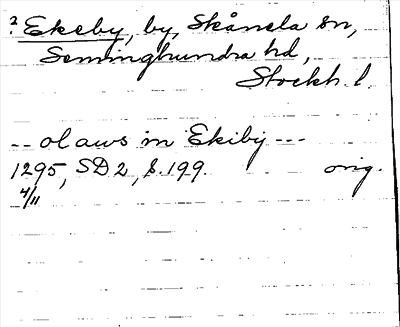 ? Ekeby, by, Skånela sn,
Seminghundra hd,
Stockh. l.
-- olaws in Ekiby ---
1295, SD 2, s. 199. orig.
4/11